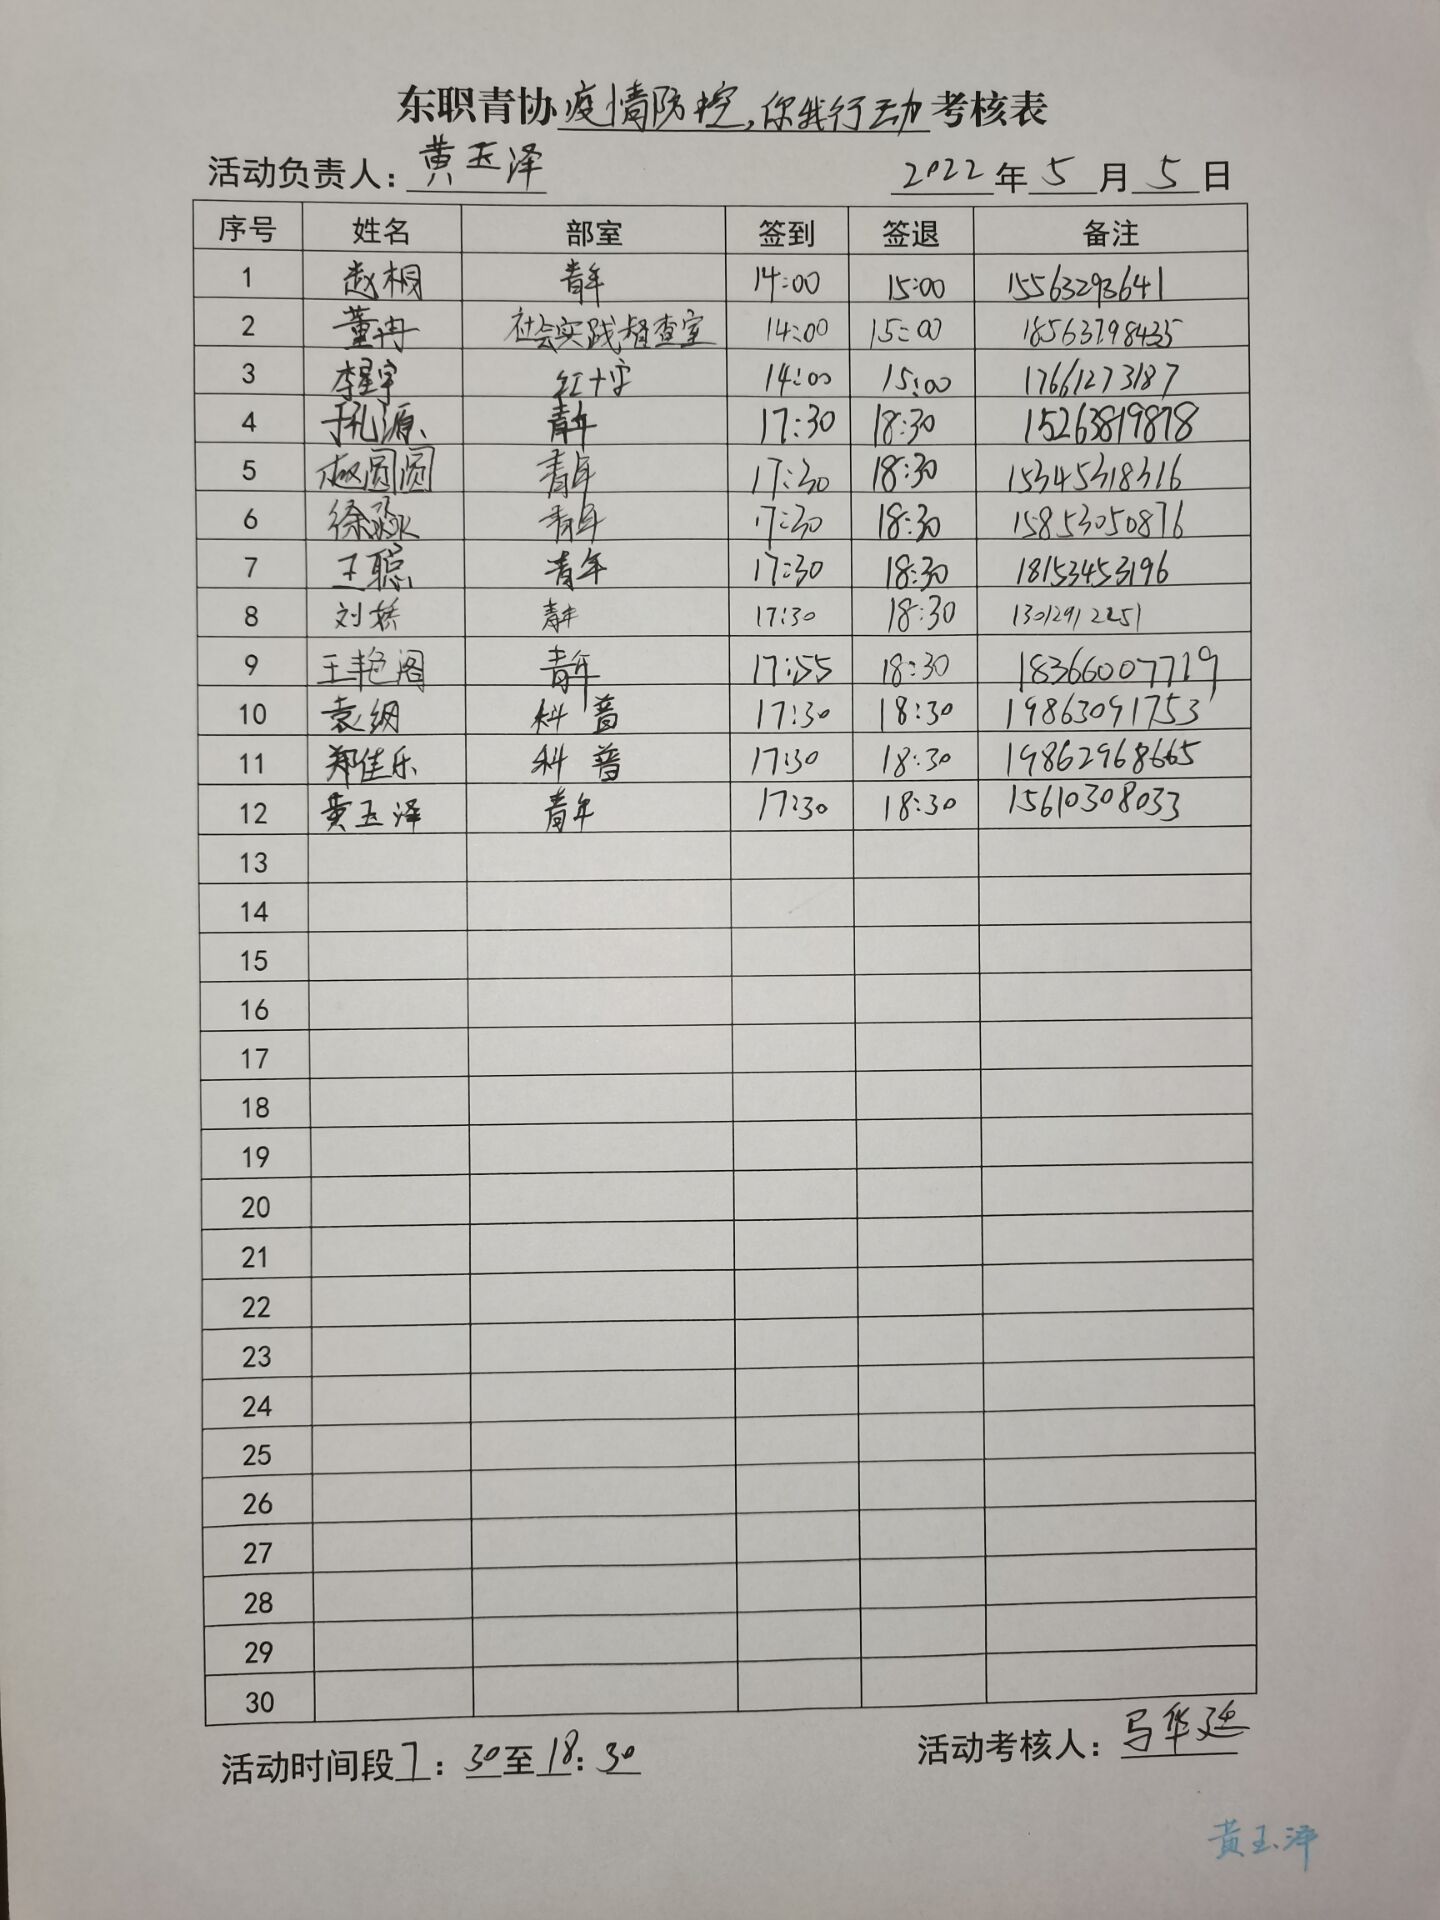 东职青协疫情防控,你我行动考核表
活动负责人:黄玉泽 2022年5月5日
序号 姓名 部室 签到 签退 备注
1 赵桐 青年 14:00 15:00 15563293641
2 董冉 社会实践督查室 14:00 15:00 18563798435
3 李星宇 红十字 14:00 15:00 17661273187
4 于孔源 青年 17:30 18:30 15263819878
5 赵圆圆 青年 17:30 18:30 15345318316
6 徐淼 青年 17:30 18:30 15853050876
7 王聪 青年 17:30 18:30 18153453196
8 刘娇 青年 17:30 18:30
9 王艳阁 青年 17:55 18:30 18366007719
10 袁纲 科普 17:30 18:30 19863091753
11 郑佳乐 科普 17:30 18:30 19862968665
12 黄玉泽 青年 17:30 18:30 15610308033
13
14
15
16
17
18
19
20
21
22
23
24
25
26
27
28
29
30
活动时间段7:30至18:30 活动考核人:马华廷
黄玉泽